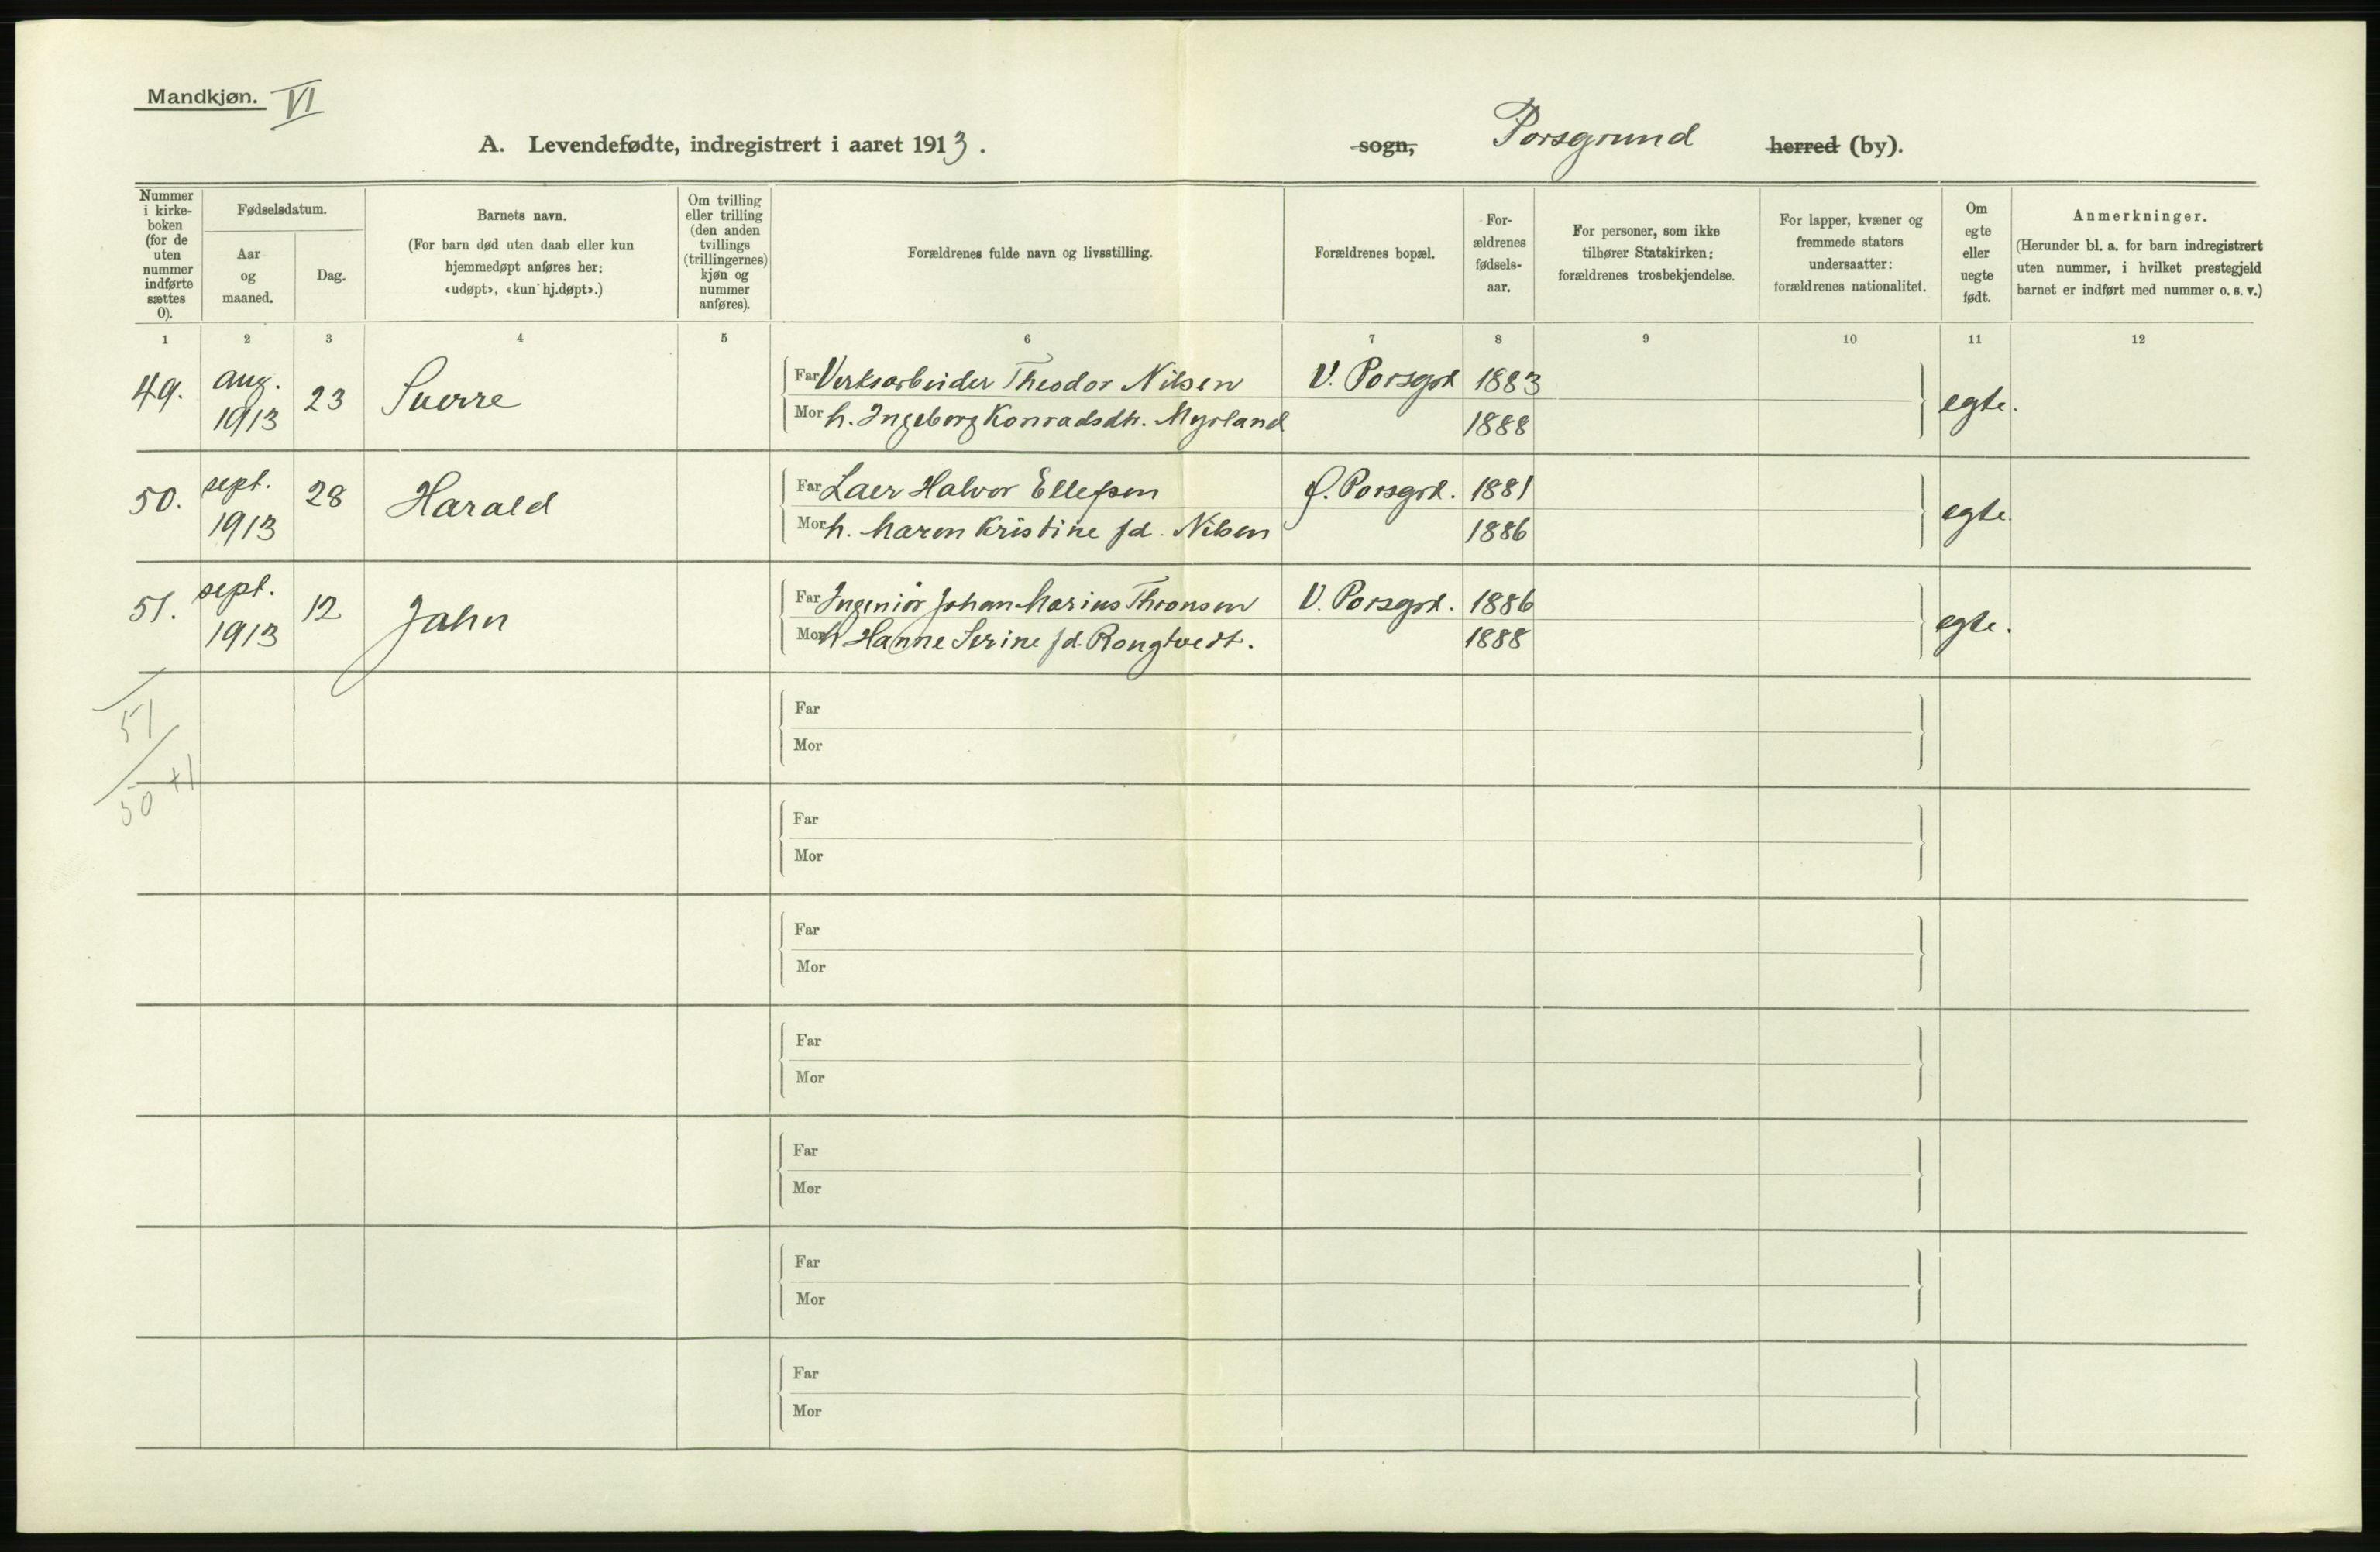 Mandkjøn. VI
A. Levendefødte, indregistrert i aaret 1913.
sogn, Porsgrund herred (by).
Nummer i kirke-boken (for de uten nummer indførte sættes 0).
Fødselsdatum.
Aar og maaned.
Dag.
Barnets navn.
(For barn død uten daab eller kun
hjemmedøpt anføres her:
«udøpt», «kun hj.døpt».)
Om tvilling
eller trilling
(den anden
tvillings
(trillingernes)
kjøn og
nummer
anføres).
Forældrenes fulde navn og livsstilling.
Forældrenes bopæl.
For-
ældrenes
fødsels-
aar.
For personer, som ikke
tilhører Statskirken:
forældrenes trosbekjendelse.
For lapper, kvæner og
fremmede staters
undersaatter:
forældrenes nationalitet.
Om
egte
eller
uegte
født.
Anmerkninger.
(Herunder bl. a. for barn indregistrert
uten nummer, i hvilket prestegjeld
barnet er indført med nummer o. s. v.)
1 2 3 4 5 6 7 8 9 10 11 12
49. aug. 1913 23 Sverre
Far Verksarbeider Theodor Nilsen V. Porsgrd 1883
Mor h. Ingeborg Konradsdtr. Myrland 1888 egte.
50. sept. 1913 28 Harald
Far Laer Halvor Ellefsen Ø. Porsgrd. 1881
Mor h. Maren Kristine fd. Nilsen 1886 egte.
51. sept. 1913 12 Jahn
Far Ingeniør Johan Marius Thronsen V. Porsgrd. 1886
Mor h Hanne Serine fd. Rongtvedt. 1888 egte.
51
50 +1
Far
Mor
Far
Mor
Far
Mor
Far
Mor
Far
Mor
Far
Mor
Far
Mor